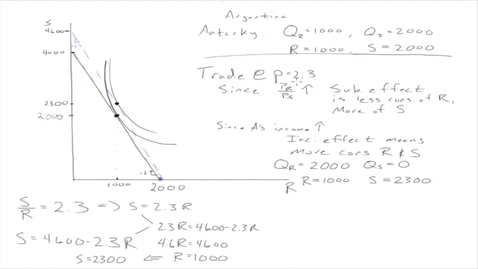 S
4600
4000
2300
2,000
1000
2000
-2.3
Argentina
Autarky: QR=1000, QS=2000
R=1000, S=2000
Trade @ p=2.3
Since PR/PS ↑ Sub effect
is less cons of R,
More of S
Since A's income ↑
Inc. effect means
more cons R & S
QR=2000 QS=0
R R=1000 S=2300
S/R = 2.3 => S=2.3R
2.3R=4600-2.3R
S=4600-2.3R
4.6R=4600
S=2300 <= R=1000